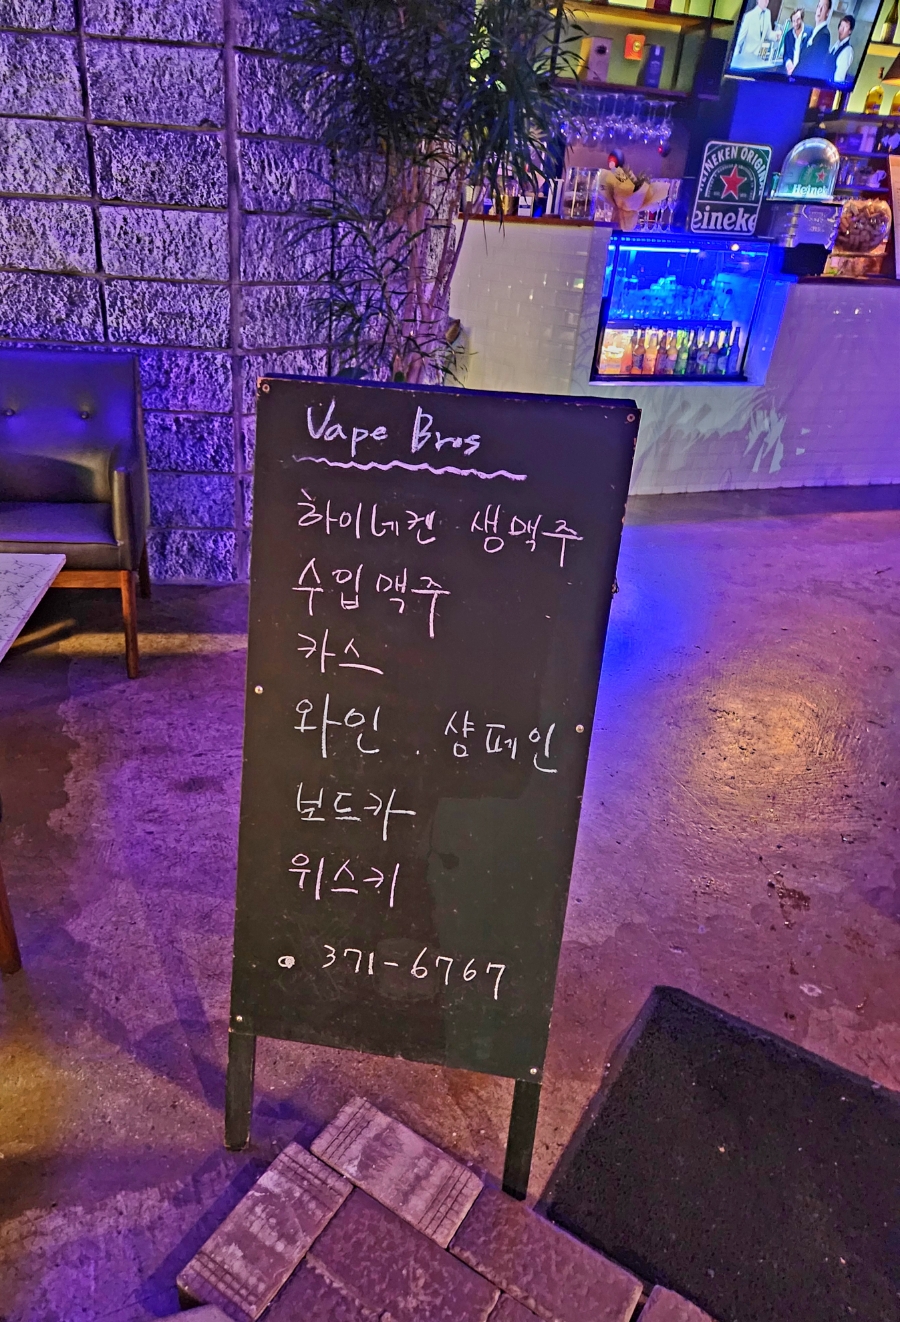 HEINEKEN ORIGINAL
Heineken
Heineken
Vape Bros
하이네켄 생맥주
수입맥주
카스
와인 . 샴페인
보드카
위스키
• 371-6767